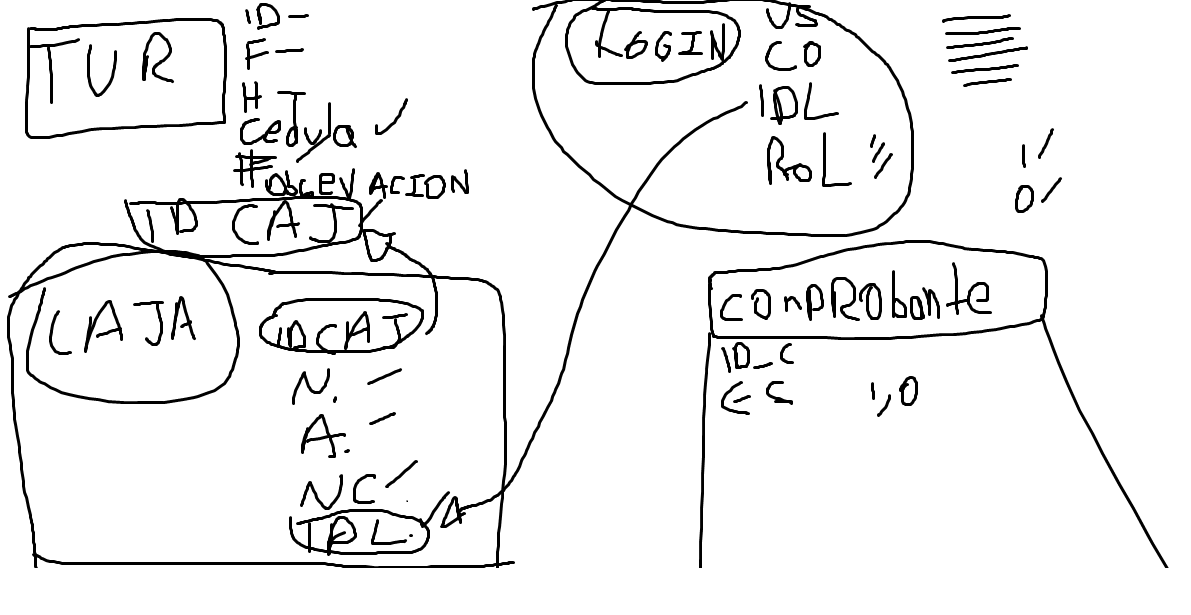 TUR
ID -
F -
H
Cedula
#
OBCEVACION
ID CAJ
CAJA
IDCAJ
N. -
A. -
NC
IDL.
LOGIN
US
CO
IDL
ROL
1
0
COMPRObante
ID_C
1,0